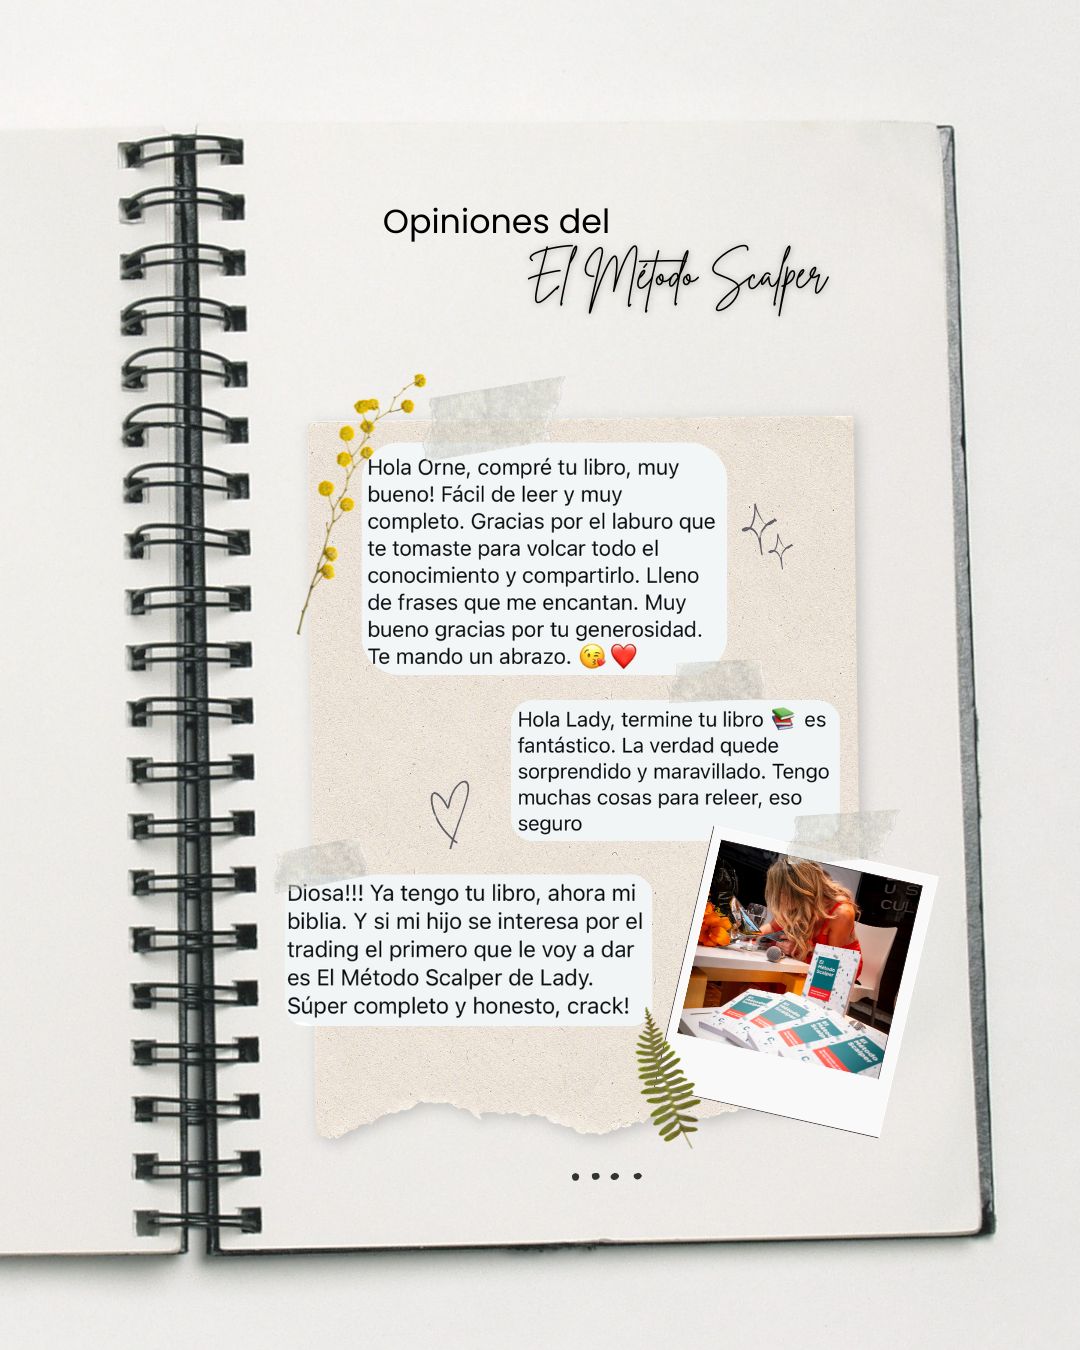 Opiniones del
El Método Scalper
Hola Orne, compré tu libro, muy
bueno! Fácil de leer y muy
completo. Gracias por el laburo que
te tomaste para volcar todo el
conocimiento y compartirlo. Lleno
de frases que me encantan. Muy
bueno gracias por tu generosidad.
Te mando un abrazo. 😘❤️
Hola Lady, termine tu libro 📚 es
fantástico. La verdad quede
sorprendido y maravillado. Tengo
muchas cosas para releer, eso
seguro
Diosa!!! Ya tengo tu libro, ahora mi
biblia. Y si mi hijo se interesa por el
trading el primero que le voy a dar
es El Método Scalper de Lady.
Súper completo y honesto, crack!
U S
CUL
El
Método
Scalper
El
Método
Scalper
El
Método
Scalper
El
Método
Scalper
El
Método
Scalper